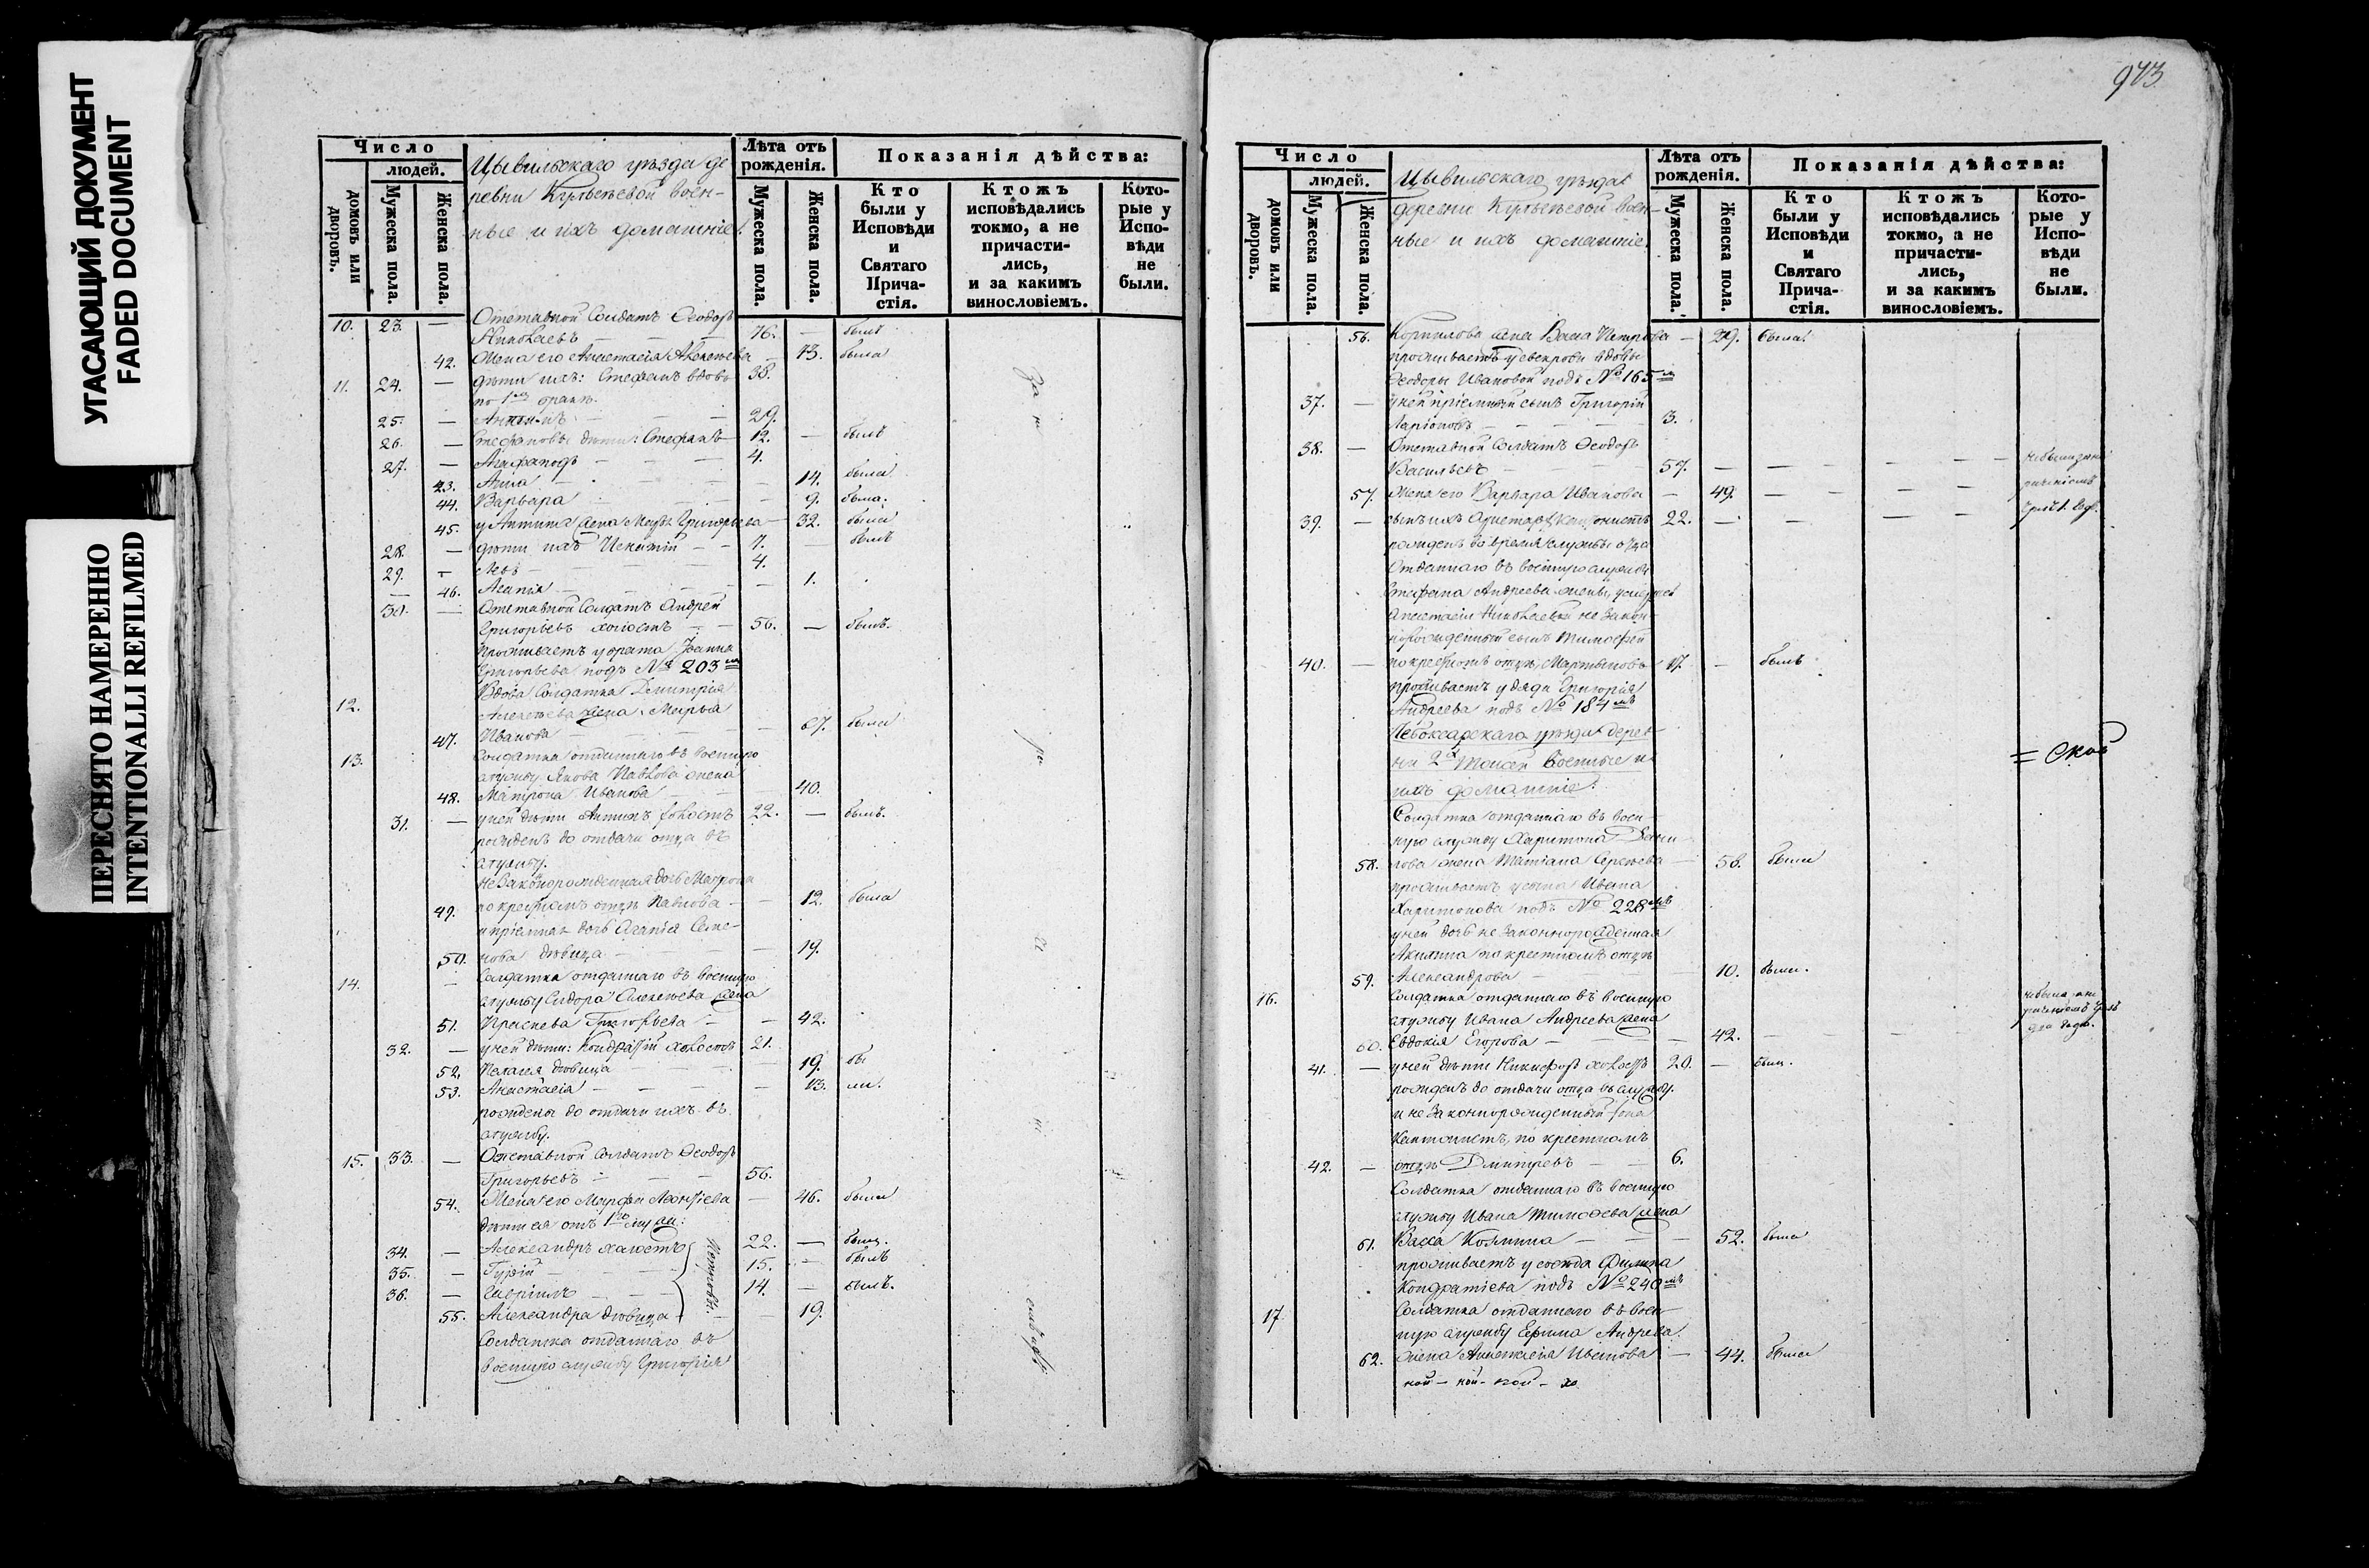 УГАСАЮЩИЙ ДОКУМЕНТ
FADED DOCUMENT
ПЕРЕСНЯТО НАМЕРЕННО
INTENTIONALLI REFILMED
Число
людей.
домовъ или дворовъ.
Мужеска пола.
Женска пола.
Цывильскаго уѣзда де-
ревни воен-
ные и ихъ домашніе.
Лѣта отъ
рожденія.
Мужеска пола.
Женска пола.
Показанія дѣйства:
Кто
были у
Исповѣди
и
Святаго
Прича-
стія.
Ктожъ
исповѣдались
токмо, а не
причасти-
лись,
и за какимъ
винословіемъ.
Кото-
рые у
Испо-
вѣди
не
были.
10. 23. — Отставной Солдатъ Ѳеодоръ
Николаевъ — 76. — былъ
42. Жена его Анастасія Алексѣева — 73. была
11. 24. — дѣти ихъ: Стефанъ вдовъ 38.
по 1мъ бракѣ.
25. — 29.
26. — Стефановы дѣти: Стефанъ 12. — былъ
27. — Агафаподъ — 4.
43. Анна — 14. была
44. Варвара — 9. была.
45. у Антипа жена Григорьева — 32. была
28. — дѣти ихъ — 7. — былъ
29. — Левъ — 4.
46. Агапія — 1.
30. — Отставной Солдатъ Андрей
Григорьевъ холостъ — 56. — былъ.
проживаетъ у брата Іоанна
Григорьева подъ № 203мъ
12. Вдова Солдатка Димитрія
Алексѣева жена Марья
47. Иванова — 67. была
13. Солдатка отданнаго въ военную
службу Якова Павлова жена
48. Матрона Иванова — 40.
31. — у ней дѣти Антипъ холостъ 22. — былъ.
рожденъ до отдачи отца въ
службу.
незаконорожденная дочь Матрона
49. по крестномъ отцѣ Павлова — 12. была
и пріемная дочь Агапія Семе-
50. нова дѣвица — 19.
14. — Солдатка отданнаго въ военную
службу Сидора Алексѣева жена
51. Григорьева — 42.
32. — у ней дѣти: Кондратій холостъ 21.
52. Пелагея дѣвица — 19. бы
53. Анастасія — 13. ли.
рождены до отдачи ихъ въ
службу.
15. 33. — Отставной Солдатъ Ѳеодоръ
Григорьевъ — 56.
54. Жена его Марфа Леонтіева — 46. была
дѣти ея отъ 1го мужа:
34. — Александръ холостъ 22. — былъ.
35. — Гурій — 15. — былъ
36. — Гавріилъ — 14. — былъ.
55. Александра дѣвица — 19.
Солдатка отданнаго въ
военную службу Григорія
973
Число
людей.
домовъ или дворовъ.
Мужеска пола.
Женска пола.
Цывильскаго уѣзда
деревни воен-
ные и ихъ домашніе.
Лѣта отъ
рожденія.
Мужеска пола.
Женска пола.
Показанія дѣйства:
Кто
были у
Исповѣди
и
Святаго
Прича-
стія.
Ктожъ
исповѣдались
токмо, а не
причасти-
лись,
и за какимъ
винословіемъ.
Кото-
рые у
Испо-
вѣди
не
были.
56. Корнилова жена Васса Петрова — 29. была.
проживаетъ у свекрови вдовы
Ѳеодоры Ивановой подъ № 165мъ
37. — у ней пріемный сынъ Григорій
Ларіоновъ — 3.
38. — Отставной Солдатъ Ѳеодоръ
Васильевъ 57. —
57. Жена его Варвара Иванова — 49. —
39. — сынъ ихъ кантонистъ 22. —
рожденъ во время службы отца
Отданнаго въ военную службу
Стефана Андреева жены
Анастасіи Николаевой не закон-
норожденный сынъ Тимофей
40. — по крестномъ отцѣ Мартыновъ 17. — былъ
проживаетъ у дяди Григорія
Андреева подъ № 184мъ
Чебоксарскаго уѣзда дерев-
ни 2й военные и
ихъ домашніе.
= ской
Солдатка отданнаго въ воен-
ную службу Харитона Дани-
58. лова жена Татіана Сергѣева — 58. была
проживаетъ у сына Ивана
Харитонова подъ № 228мъ
у ней дочь не законнорожденная
Акилина по крестномъ отцѣ
59. Александрова — 10. была.
16. Солдатка отданнаго въ военную
службу Ивана Андреева жена
60. Евдокія Егорова — 42. —
41. — у ней дѣти Никифоръ холостъ 20. — былъ.
рожденъ до отдачи отца въ службу.
и не законнорожденный
кантонистъ, по крестномъ
42. — отцѣ Дмитревъ — 6.
Солдатка отданнаго въ военную
службу Ивана Тимофеева жена
61. Васса Козмина — 52. была
проживаетъ у сосѣда Филипа
Кондратіева подъ № 240мъ
17. Солдатка отданнаго въ воен-
ную службу Ефима Андреева
62. жена Анастасія Иванова — 44. была